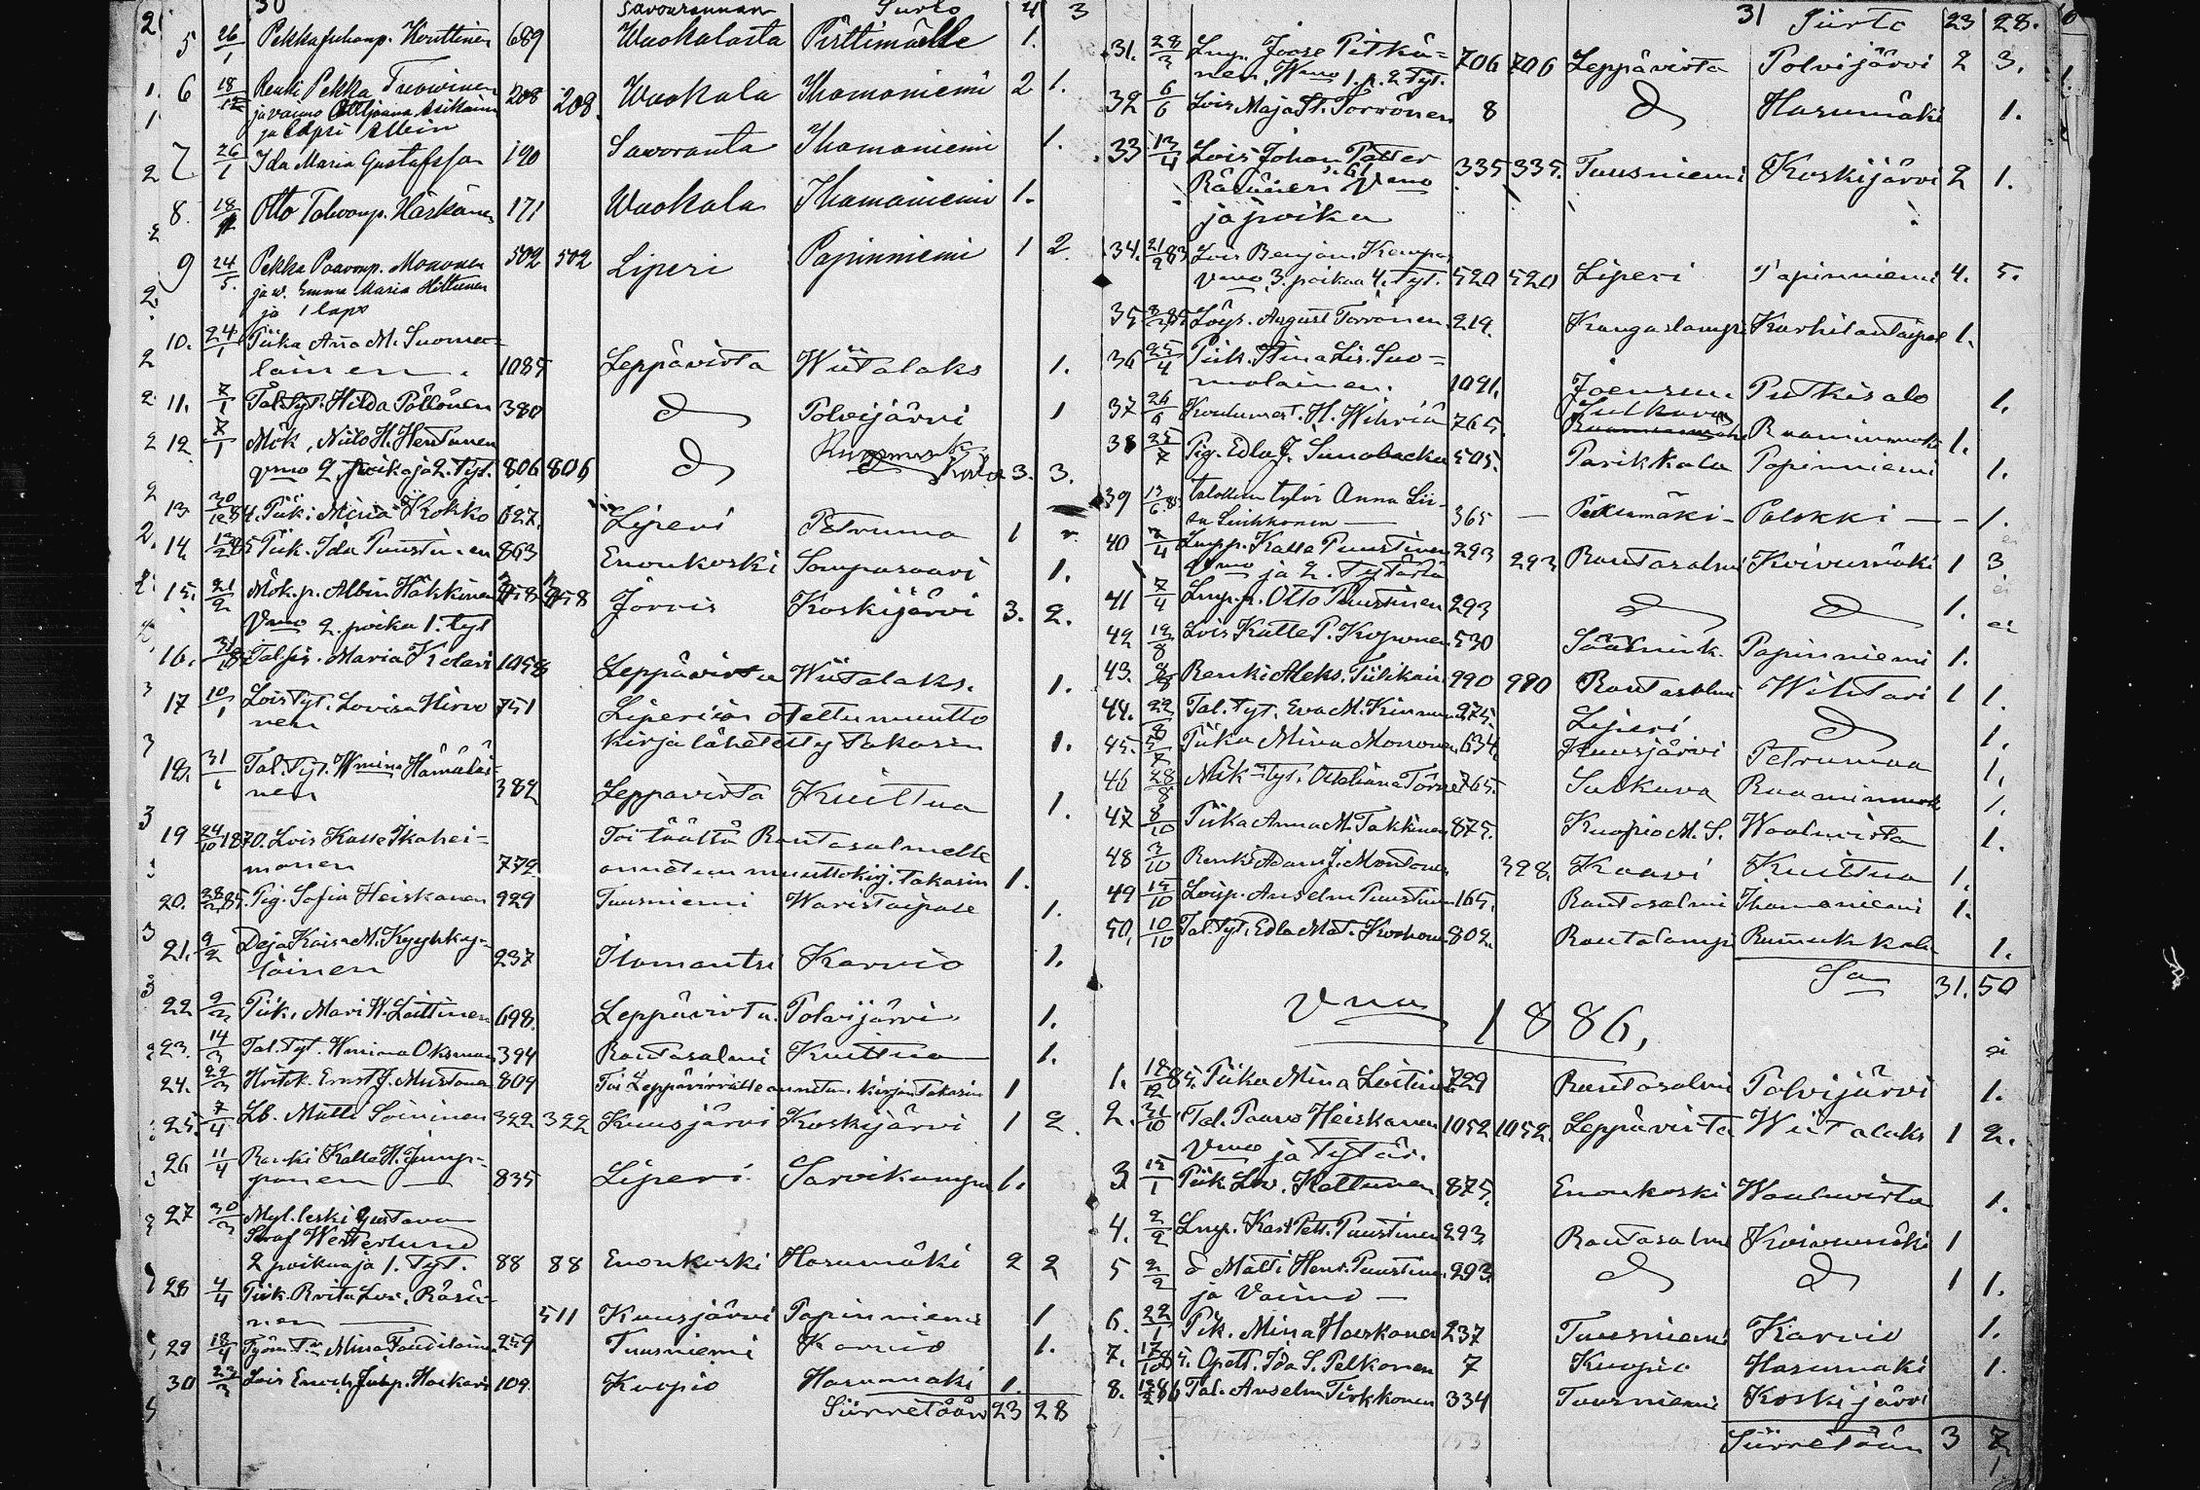 30 Savonrannan Siirto 4 3
5 26/1 Pekka Juhanp. Kouttinen 689 Waokalasta Pirttimäelle 1.
6 18/12 Renki Pekka Tuovinen 208 208. Waokala Ihamaniemi 2 1.
ja vaimo
ja lapsi
7 26/1 Ida Maria Gustafsson 190 Savoranta Ihamaniemi 1.
8. 18 Otto Tahvanp. Häskänen 171 Waokala Ihamaniemi 1.
9 24/5. Pekka Paavonp. Mononen 502 502 Liperi Papinniemi 1 2
ja w. Emma Maria Hiltunen
ja 1 laps
10. 24/1 Piika Anna M. Suoma=
lainen. 1085 Leppävirta Wiitalaks 1.
11. 7/1 Tal. tyt. Hilda Pöllönen 380 d Polvijärvi 1
12. 7/1 Mök. Niilo H. Hentunen
vmo 2 poika ja 2. tyt. 806 806 d 3. 3.
13 30/12 84. Piik: Miina Kokko 627. Liperi Petruma 1
14. Piik. Ida Puustinen 863 Enonkoski Somparsaari 1.
15. 21/2 Mök. p. Albin Häkkinen 458 458 Jorois Koskijärvi 3. 2.
Vmo 2. poika 1. tyt
16. Tal. pi. Maria Kolari 1058 Leppävirta Wiitalaks. 1.
17 10/1 Lois tyt. Lovisa Hirvo
nen 751 Liperiin otettu muutto
kirja lähetetty takasin 1.
18. 31/1 Tal. Tyt. Wmina Hämäläi-
nen 382 Leppävirta Kuittua 1.
19 24/10 1870. Lois Kalle Ikahei-
monen 772 Toi täältä Rantasalmelle
annetun muuttokirj. takasin 1.
20. 28/2 85. Pig. Sofia Heiskanen 929 Tuusniemi Waristaipale 1.
21. 9/2 Deja Kaisa M. Kyyhky-
läinen 237 Ilomantsi Karvio 1.
22 9/3 Piik, Mari W. Laittinen 698. Leppävirta. Polvijärvi 1.
23. 14/3 Tal. Tyt. Wmina Oksman 394 Rantasalmi Kuittua 1.
24. 22/3 Ernst J. Mustonen 809 Toi Leppävirralle annetun kirjan takasin 1
25. 7/4 Lb. Matti Soininen 322 322 Kuusjärvi Koskijärvi 1 2.
26 11/4 Renki Kalle H. Jump-
ponen 835 Liperi Sarvikumpu 1.
27 30/3 Myl. leski Gustava
Westerlund
2 poikaa ja 1. Tyt. 88 88 Enonkoski Hasumäki 2 2
28 4/4 Piik. Riita Lov. Räsä-
nen 511 Kuusjärvi Papinniemi 1
29 18/4 Miina Tanditainen 259 Tuusniemi Karvio 1.
30 23/3 Lois Enoch Juhp. Hoikain 109. Kuopio Hasumäki 1.
Siirretään 23 28
31 Siirto 23 28.
31. 28/3 Lmp. Joose Pitkä=
nen. Wmo 1. p. 2 Tyt. 706 706 Leppävirta Polvijärvi 2 3.
32 6/6 Lois Maja St. Torvönen 8 d Hasumäki 1.
33 13/4 Lois Johan Petter
Räsänen Vmo 335 335. Tuusniemi Koskijärvi 2 1.
ja poika
34. 21/2 83 Lois Benjam. Kamp
vmo 3. poikaa 4. Tyt. 520 520 Liperi Papinniemi 4. 5.
35 Löys. August Torvönen 219. Kangaslampi Karhilantaipal 1.
36 25/4 Piik. Stina Lis. Suo=
malainen. 1091. Joensuu. Putkisalo 1.
37 26/6 Koulumest. H. Wihriä 765. Sulkava Raaminmäki 1.
38 25/7 Pig. Edla J. Sunabacka 505. Parikkala Papinniemi 1.
39 talollisen tytär Anna Lii-
sa Liukkonen 365 — Pieksämäki – Palokki — – 1.
40 7/4 Lmp p. Kalle Puustinen 293 293 Rantasalmi Koivumäki 1 3
vmo ja 2. Tytärtä
41 7/4 Lmp. p. Otto Puustinen 293 d d 1.
42 12/8 Lois Kalle P. Koponen 530 Säämink. Papinniemi 1.
43. 8/8 Renki Aleks. Tiihkain 990 990 Rantasalmi Wihtari 1 1.
44. 22/8 Tal. Tyt. Eva M. Kinnunen 975. Liperi d 1.
45. 5/7 Piika Mina Mononen 634 Kuusjärvi Petrumaa 1.
46 28/8 Mök Tyt. Ottoliana 765. Sulkava Raaminmäk 1.
47 8/10 Piika Anna M. Takkinen 875. Kuopio M. S. Waaluvirta 1.
48 3/10 Renki Adam J. Mustonen 398. Kaavi Kuittua 1.
49 15/10 Loisp. Anselm Puustinen 165. Rantasalmi Ihamaniemi 1.
50. 10/10 Tal. Tyt. Edla Mat. Korhonen 802. Rautalampi Rummukkala 1.
Sa 31. 50
Vna 1886,
1. 18/12 85. Piika Mina Loitin 729 Rantasalmi Polvijärvi 1.
2. 31/10 Tal. Paavo Heiskanen 1052 1052. Leppävirta Wiitalaks 1 2.
Vmo ja tytär.
3 15/1 Piik Lov. Kettunen 875. Enonkoski Waaluvirta 1.
4. 2/2 Lmp. Kast Pett. Puustinen 293. Rantasalmi Koivumäki 1
5 2/2 d Matti Henr. Puustinen 293. d d 1 1.
ja Vaimo —
6. 22/1 Pik. Mina Hoiskanen 237 Tuusniemi Karvio 1.
7. 17/10 85. Opett. Ida S. Pelkonen 7 Kuopio Hasumäki 1.
8. Tal. Anselm Tirkkonen 334 Tuusniemi Koskijärvi
Siirretään 3 7